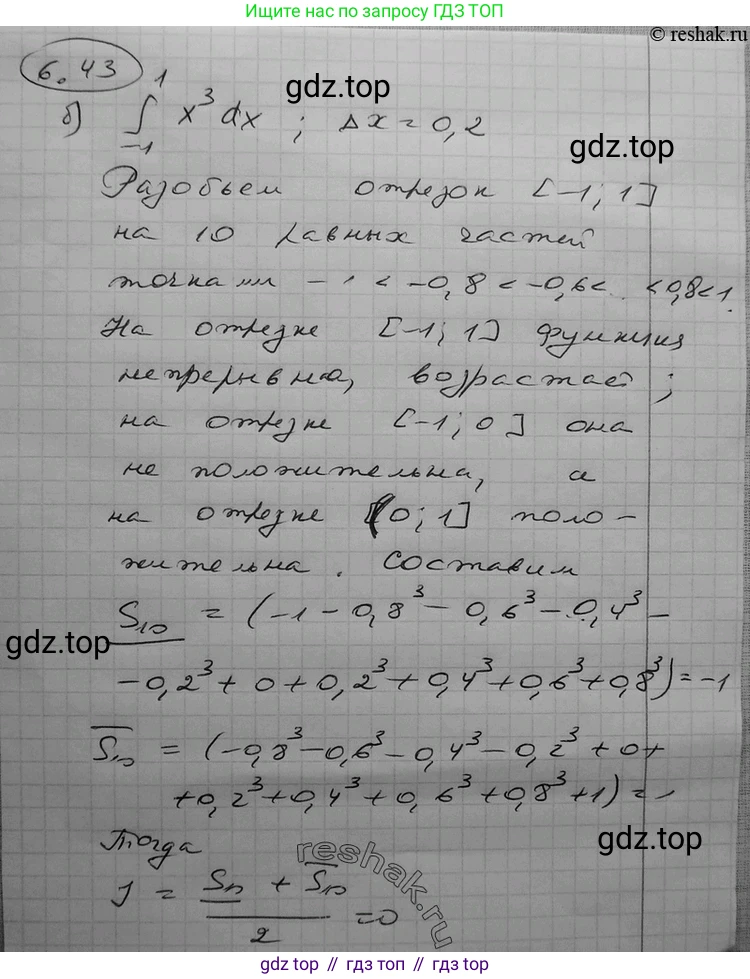 Ищите нас по запросу ГДЗ ТОП
© reshak.ru
6.43
gdz.top
б) ∫₋₁¹ x³ dx ; Δx = 0,2
gdz.top
Разобьем отрезок [-1; 1]
на 10 равных частей
точками -1 < -0,8 < -0,6 < .. < 0,8 < 1.
На отрезке [-1; 1] функция
непрерывна, возрастает;
на отрезке [-1; 0] она
не положительна, а
на отрезке (0; 1] поло-
gdz.top
жительна. Составим
S₁₀ = (-1 - 0,8³ - 0,6³ - 0,4³ -
gdz.top
-0,2³ + 0 + 0,2³ + 0,4³ + 0,6³ + 0,8³) = -1
S̅₁₀ = (-0,8³ - 0,6³ - 0,4³ - 0,2³ + 0 +
+ 0,2³ + 0,4³ + 0,6³ + 0,8³ + 1) = 1
gdz.top
Тогда
reshak.ru
J = (S₁₀ + S̅₁₀) / 2 = 0
gdz.top // gdz.top // gdz.top // gdz.top